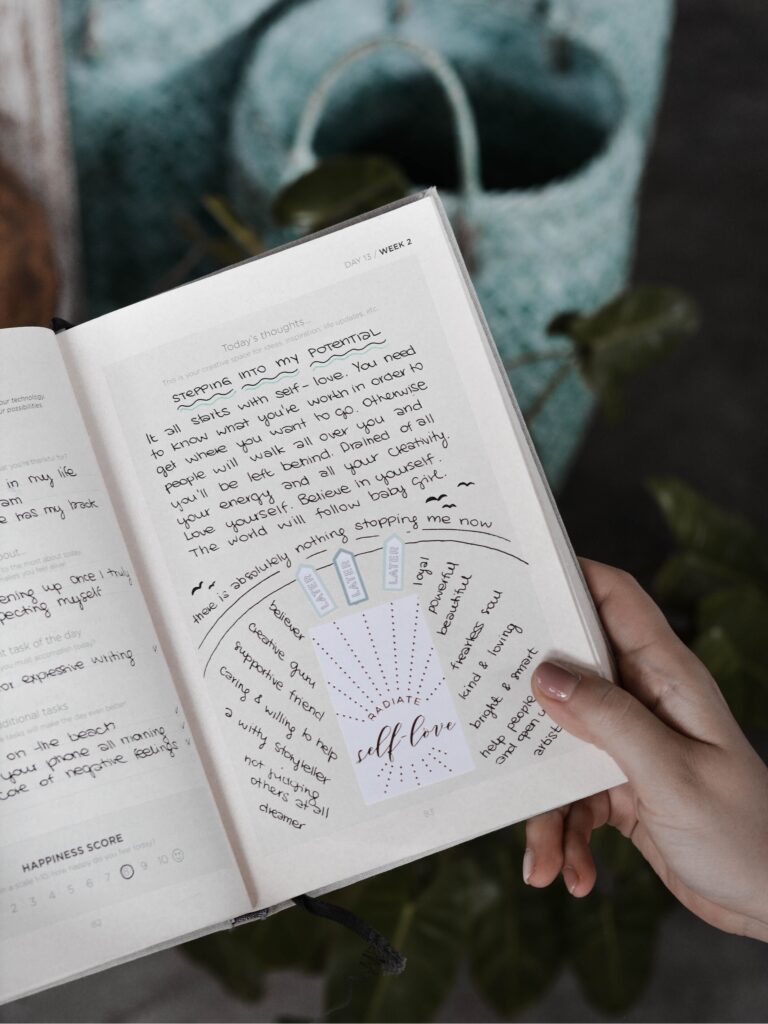 your technology.
our possibilities.
what you're thankful for?
in my life
am
he has my back
about...
to the most about today
makes you feel alive!
ening up once I truly
pecting myself
t task of the day
you must accomplish today?
or expressive writing
ditional tasks
tasks will make the day even better!
on the beach
your phone all morning
care of negative feelings
HAPPINESS SCORE
on a scale 1-10, how happy do you feel today?
2 3 4 5 6 7 8 9 10
82
DAY 13 / WEEK 2
Today's thoughts...
This is your creative space for ideas, inspiration, life updates, etc.
STEPPING INTO MY POTENTIAL
It all starts with self-love. You need
to know what you're worth in order to
get where you want to go. Otherwise
people will walk all over you and
you'll be left behind. Drained of all
your energy and all your creativity.
Love yourself. Believe in yourself.
The world will follow baby girl.
there is absolutely nothing stopping me now
LATER
LATER
LATER
believer
creative guru
supportive friend
caring & willing to help
a witty storyteller
not judging
others at all
dreamer
RADIATE
self-love
loyal
powerful
beautiful
fearless soul
kind & loving
bright & smart
help people
and open
artist
83